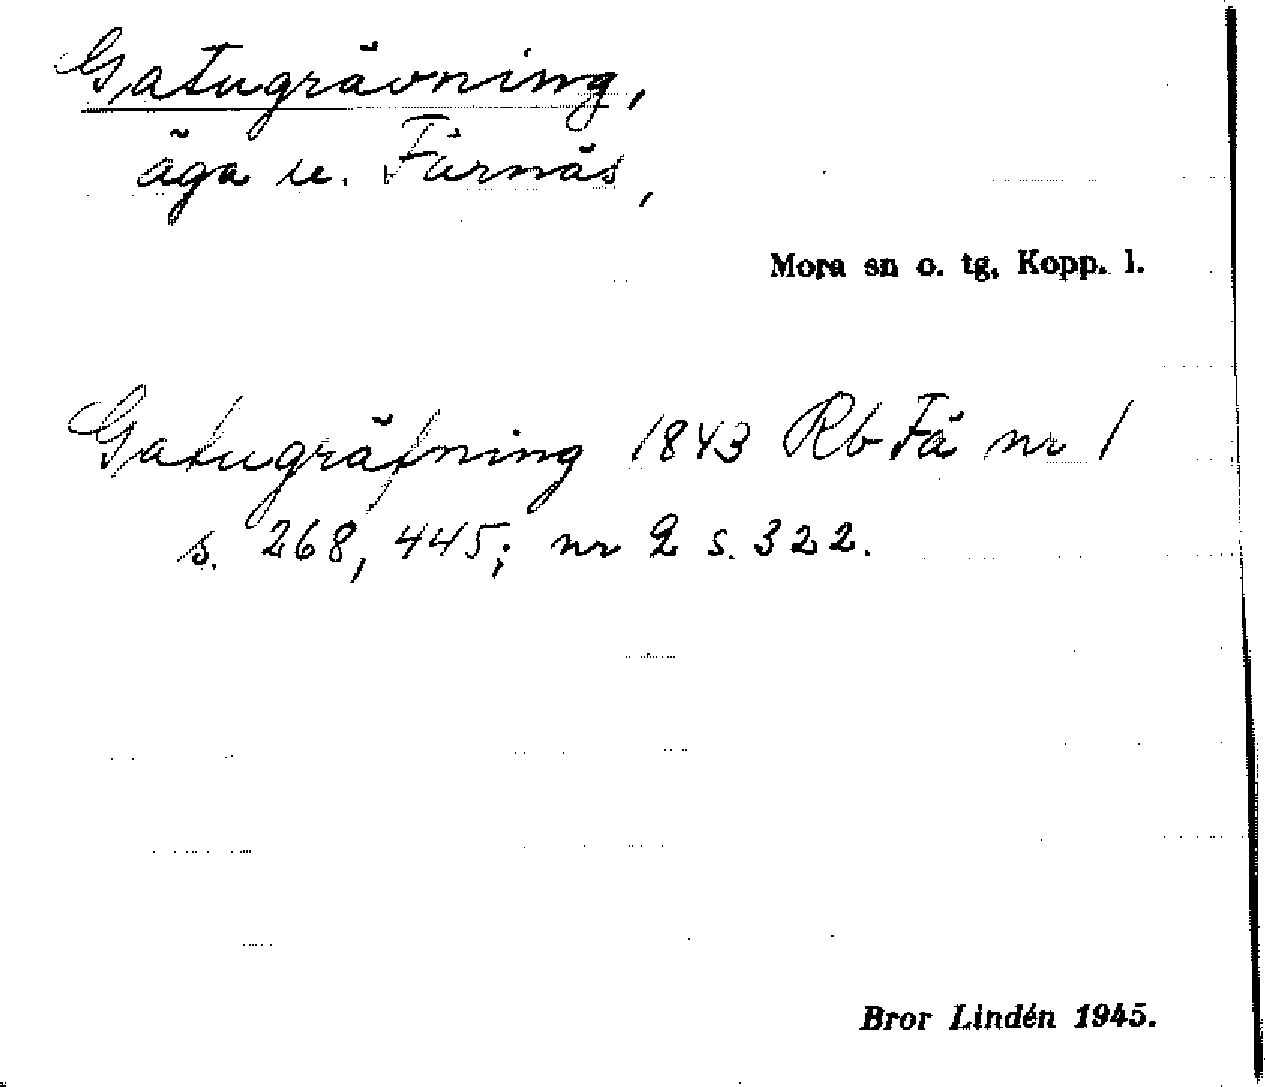 Gatugrävning,
äga u. Färnäs,
Mora sn o. tg, Kopp. l.
Gatugräfning 1843 Rb Fä nr 1
s. 268, 445; nr 2 s. 322.
Bror Lindén 1945.